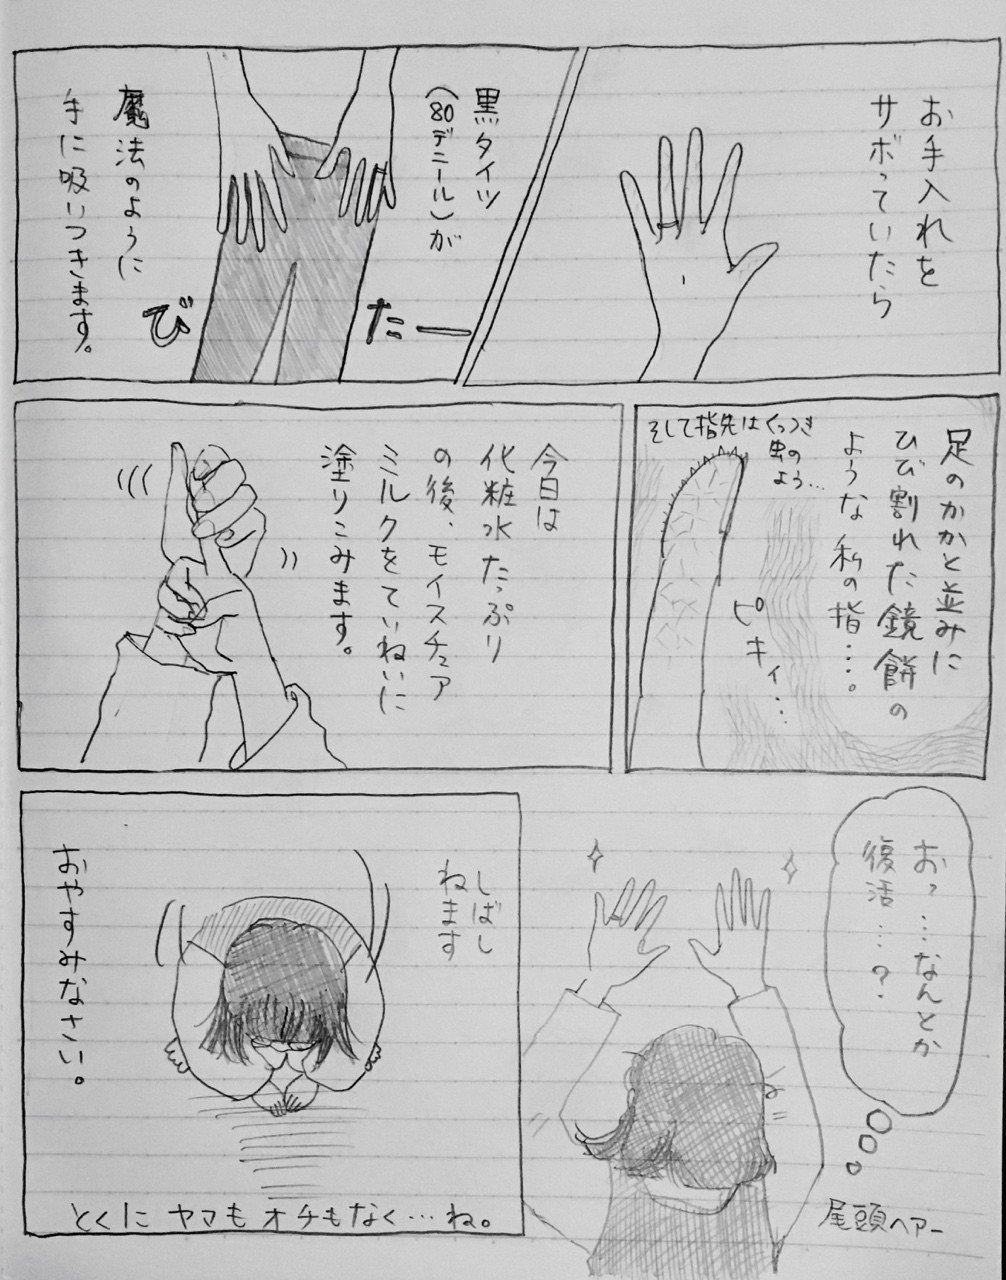 お手入れを
サボっていたら
黒タイツ
(80デニール)が
魔法のように
手に吸いつきます。
びたー
足のかかと並みに
ひび割れた鏡餅の
ような私の指…。
そして指先はくっつき
虫の
よう…
ピキィ…
今日は
化粧水たっぷり
の後、モイスチュア
ミルクをていねいに
塗りこみます。
おっ…なんとか
復活…?
尾頭ヘアー
しばし
ねます
おやすみなさい。
とくにヤマもオチもなく…ね。